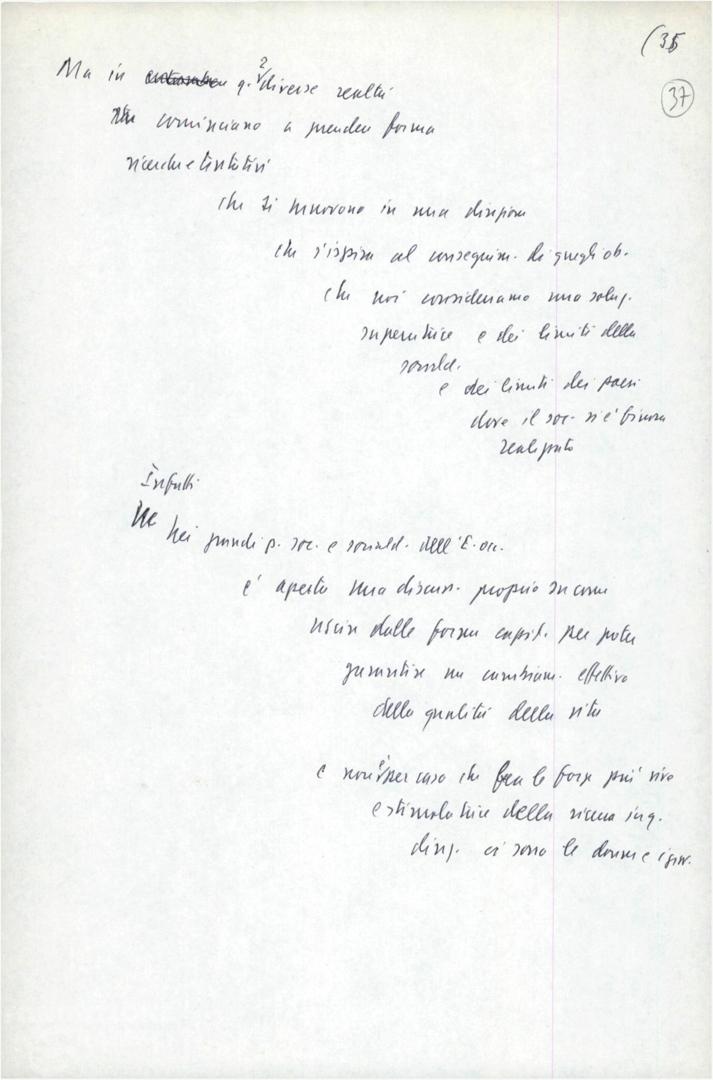 (35
37
Ma in q. 2 diverse realtà
cominciano a prender forma
ricerche e tentativi
che si muovono in una direzione
che s'ispira al conseguim. di quegli ob.
che noi consideriamo una soluz.
superatrice e dei limiti della
sociald.
e dei limiti dei paesi
dove il soc. si è finora
realizzato
Infatti
Nei grandi p. soc. e sociald. dell'E. occ.
è aperta una discuss. proprio su come
uscire dalle forme capit. per poter
garantire un cambiam. effettivo
della qualità della vita
e non è per caso che fra le forze più vive
e stimolatrici della ricerca in q.
direz. ci sono le donne e i giov.